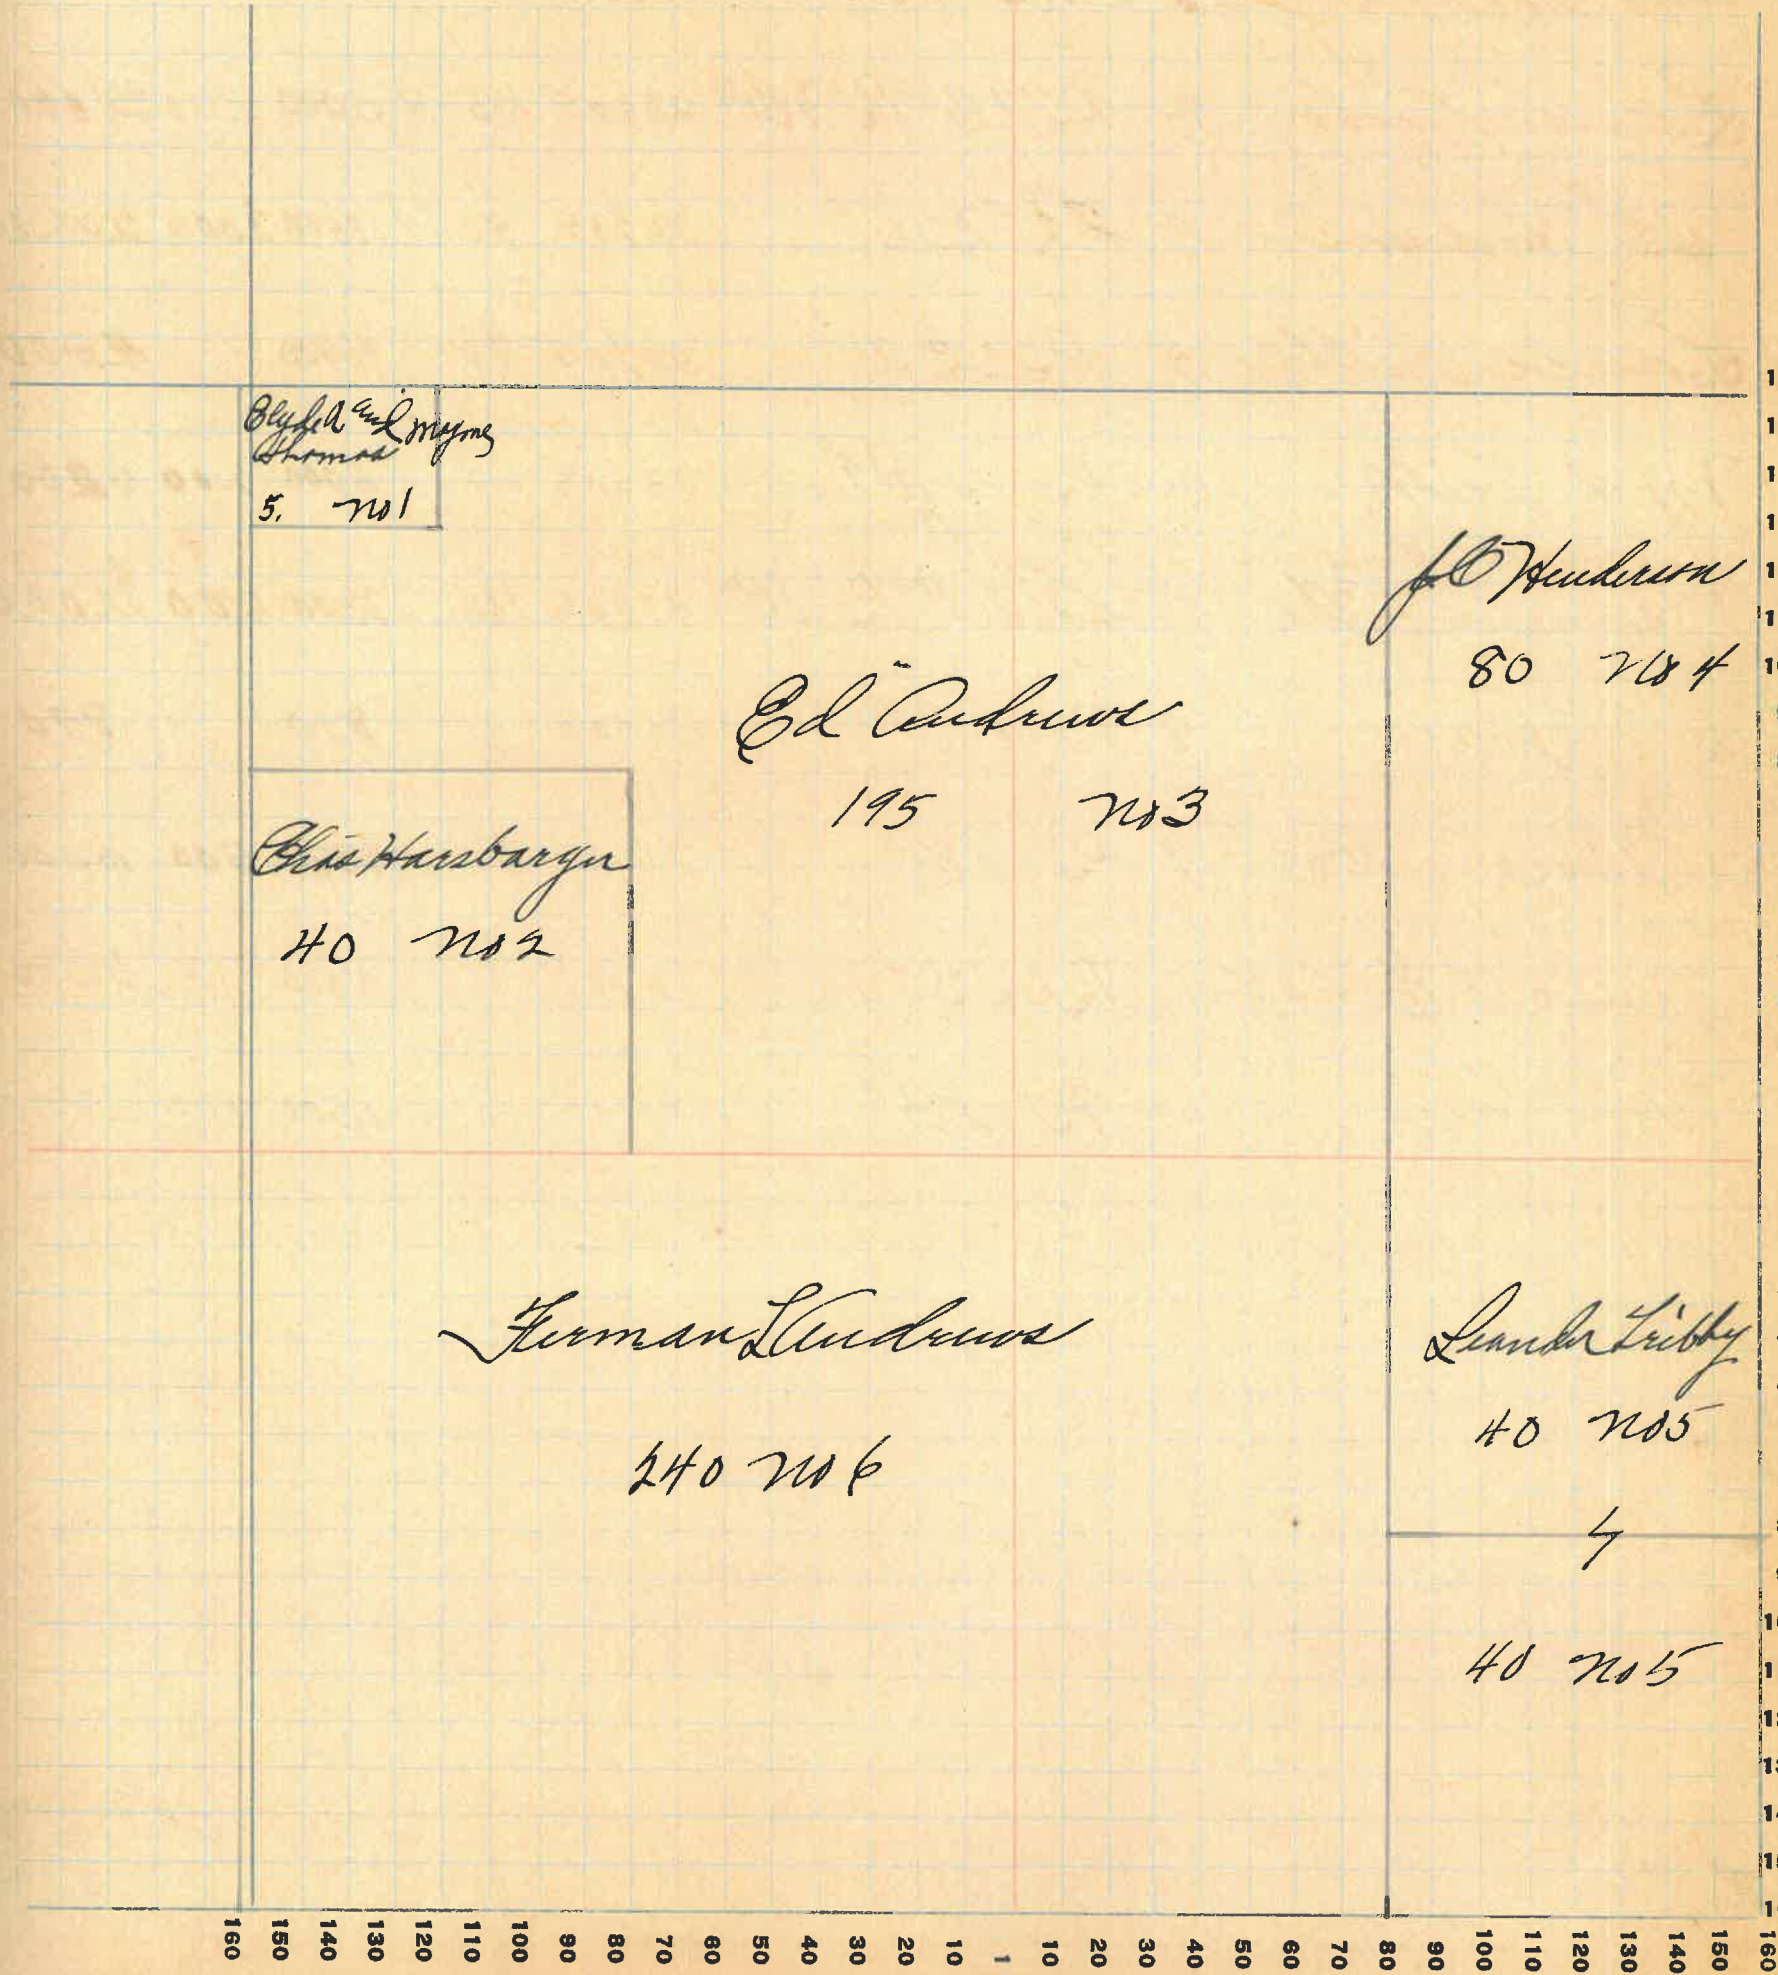 Clyde A and Mayme
Thomas
5. No 1
J C Henderson
80 No 4
Ed Andrews
195 No 3
Chas Harsbarger
40 No 2
Furman L Andrews
240 No 6
Leander Tribby
40 No 5
40 No 5
160 150 140 130 120 110 100 90 80 70 60 50 40 30 20 10 1 10 20 30 40 50 60 70 80 90 100 110 120 130 140 150 160